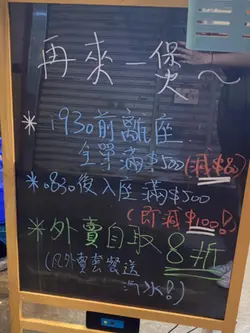 再來一煲~
*1930前離座
全單滿$500(減$80)
*2030後入座滿$500
(即減$100!)
*外賣自取 8折
(凡外賣套餐送
汽水!)